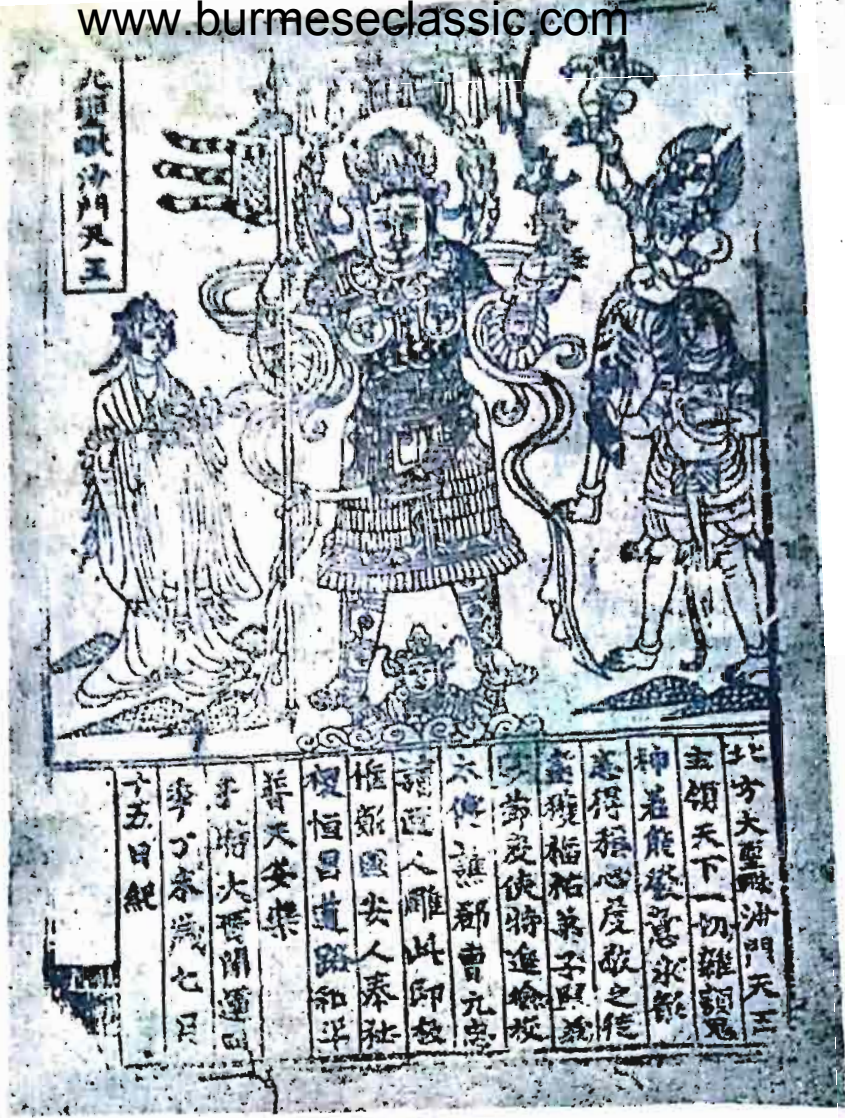 www.burmeseclassic.com
大聖毗沙門天王
北方大聖毗沙門天王
主領天下一切雜類鬼
神若能發意求願
悉得稱心虔敬之徒
盡獲福祐弟子歸義
軍節度使特進檢校
太傅譙郡曹元忠
請匠人雕此印板
惟願國安人泰社
稷恒昌道路和平
普天安樂
于時大晉開運四
年丁未歲七月
十五日紀